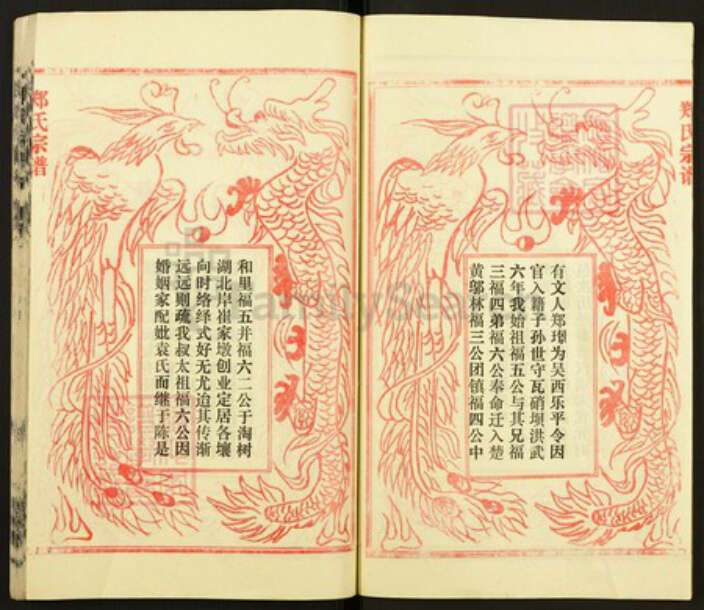 郑氏宗谱
有文人郑璟为吴西乐平令因
官入籍子孙世守瓦硝坝洪武
六年我始祖福五公与其兄福
三福四弟福六公奉命迁入楚
黄邬林福三公团镇福四公中
和里福五并福六二公于淘树
湖北岸崔家墩创业定居各壤
向时络绎式好无尤迨其传渐
远远则疏我叔太祖福六公因
婚姻家配妣袁氏而继于陈是
郑氏宗谱